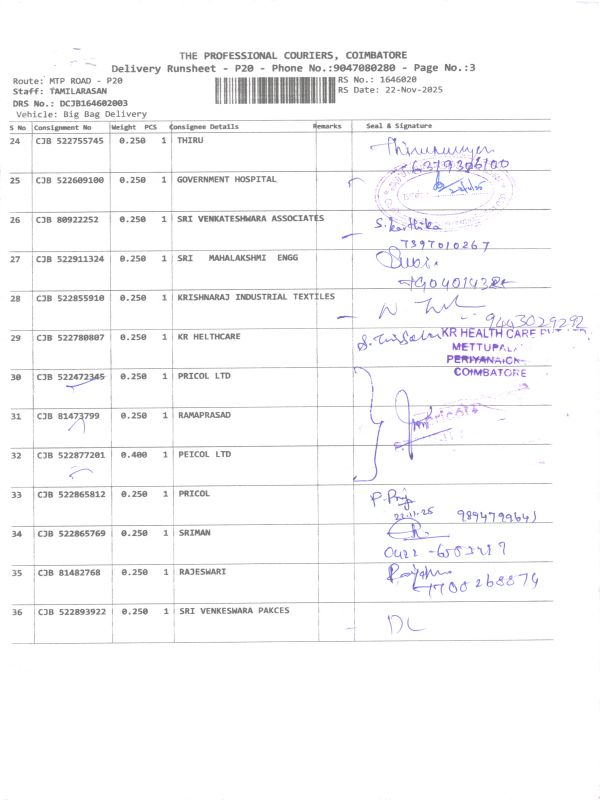 THE PROFESSIONAL COURIERS, COIMBATORE
Delivery Runsheet - P20 - Phone No.:9047080280 - Page No.:3
Route: MTP ROAD - P20
RS No.: 1646020
Staff: TAMILARASAN
RS Date: 22-Nov-2025
DRS No.: DCJB164602003
Vehicle: Big Bag Delivery
S No Consignment No Weight PCS Consignee Details Remarks Seal & Signature
24 CJB 522755745 0.250 1 THIRU
6379306100
25 CJB 522609100 0.250 1 GOVERNMENT HOSPITAL
26 CJB 80922252 0.250 1 SRI VENKATESHWARA ASSOCIATES S. Karthika
7397010267
27 CJB 522911324 0.250 1 SRI MAHALAKSHMI ENGG
28 CJB 522855910 0.250 1 KRISHNARAJ INDUSTRIAL TEXTILES
9443029292
29 CJB 522780807 0.250 1 KR HELTHCARE KR HEALTH CARE
COIMBATORE
30 CJB 522472345 0.250 1 PRICOL LTD
31 CJB 81473799 0.250 1 RAMAPRASAD
32 CJB 522877201 0.400 1 PEICOL LTD
33 CJB 522865812 0.250 1 PRICOL
22.11.25
34 CJB 522865769 0.250 1 SRIMAN
35 CJB 81482768 0.250 1 RAJESWARI
36 CJB 522893922 0.250 1 SRI VENKESWARA PAKCES
DL